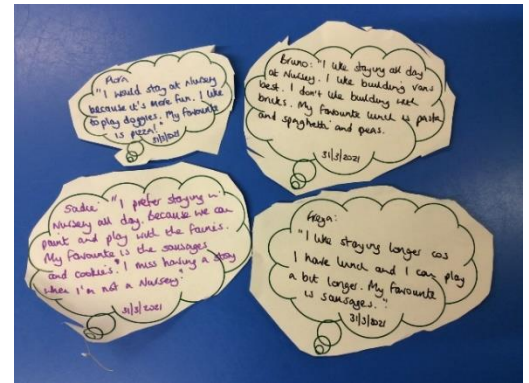 "I would stay at Nursery
because it's more fun. I like
to play doggies. My favourite
is pizza!"
31/3/2021
Bruno: "I like staying all day
at Nursery. I like building vans
best. I don't like building with
bricks. My favourite lunch is pasta
and spaghetti and peas.
31/3/2021
Sadie: "I prefer staying in
Nursery all day. Because we can
paint and play with the fairies.
My favourite is the sausages
and cookies. I miss having a stay
when I'm not a Nursery."
31/3/2021
Freya:
"I like staying longer cos
I have lunch and I can play
a bit longer. My favourite
is sausages."
31/3/2021